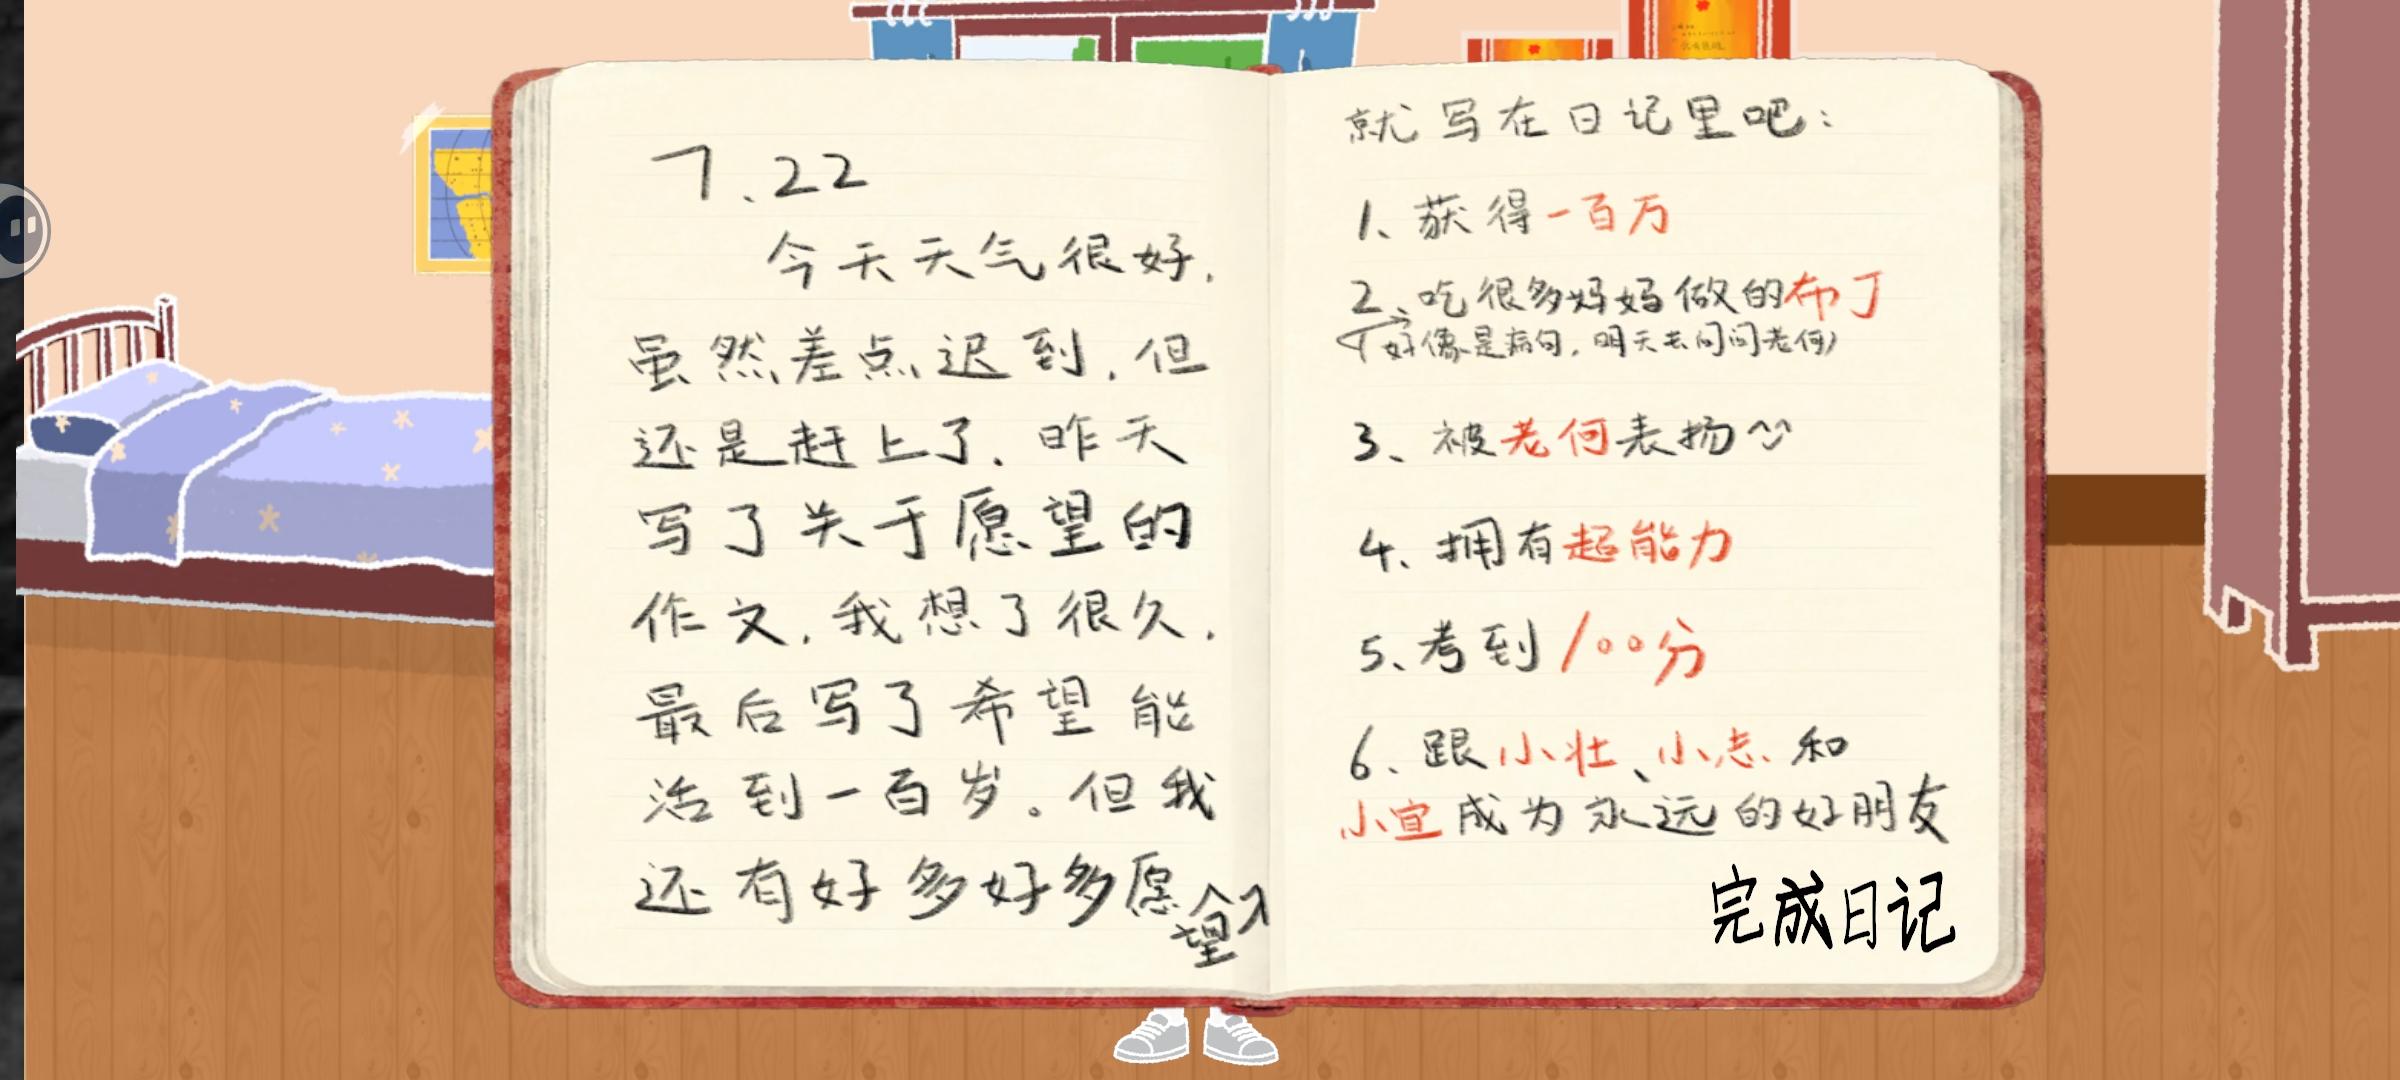 7.22
今天天气很好.
虽然差点迟到,但
还是赶上了.昨天
写了关于愿望的
作文,我想了很久.
最后写了希望能
活到一百岁。但我
还有好多好多愿望
就写在日记里吧:
1、获得一百万
2、吃很多妈妈做的布丁
(好像是病句,明天去问问老何)
3、被老何表扬
4、拥有超能力
5、考到100分
6、跟小壮、小志和
小宣成为永远的好朋友
完成日记